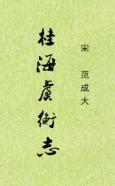 桂海虞衡志
宋 范成大